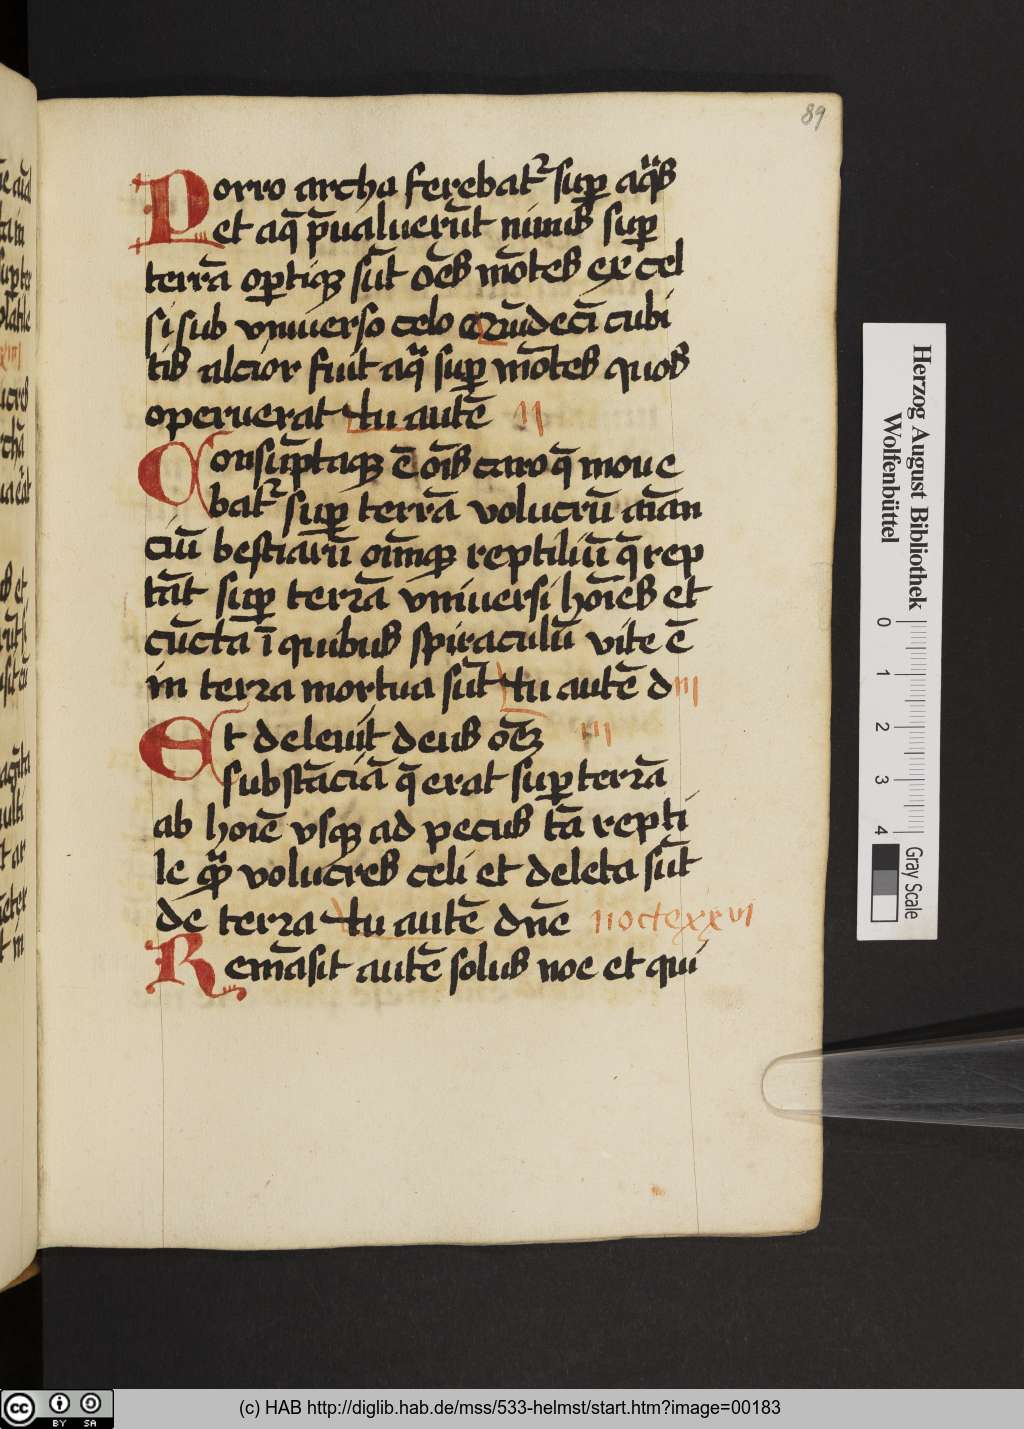 89
Porro archa ferebat᷑ suꝑ aq̈s
et aq̄ p̄ualuerūt nimis suꝑ
terrā oꝑtiqꝫ sūt oēs mōtes excel
si sub vniuerso celo Qⁱndecī cubi
tis alcior fuit aqᷓ suꝑ mōtes quos
operuerat tu autē II
Consūptaqꝫ ē oīs caro q̄ moue
bat᷑ suꝑ terrā volucrū aīan
ciū bestiarū oīmqꝫ reptiliū q̄ rep
tāt suꝑ terrā vniuersi hoīes et
cūcta ī quibus spiraculū vite ē
in terra mortua sūt tu autē d III
Et deleuit deus oēꝫ III
substāciā q̄ erat suꝑ terrā
ab hoīe vsqꝫ ad pecus tā repti
le qᷓꝫ volucres celi et deleta sūt
de terra tu autē dn̄e II octe xxvi
Remāsit autē solus noe et qui
Herzog August Bibliothek
Wolfenbüttel
0 1 2 3 4
Gray Scale
cc BY SA
(c) HAB http://diglib.hab.de/mss/533-helmst/start.htm?image=00183